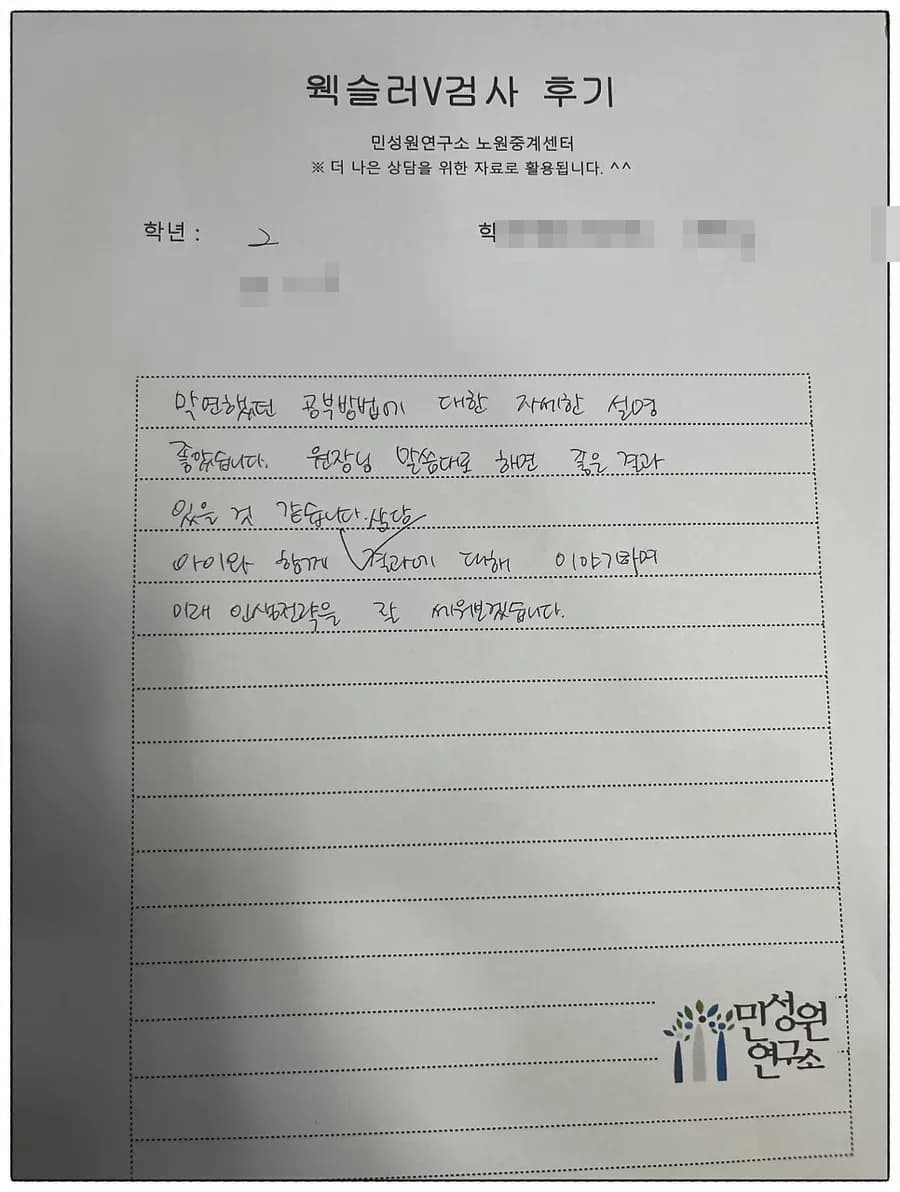 웩슬러V검사 후기
민성원연구소 노원중계센터
※ 더 나은 상담을 위한 자료로 활용됩니다. ^^
학년 : 2 학
막연했던 공부방법에 대한 자세한 설명
좋았습니다. 원장님 말씀대로 하면 좋은 결과
있을 것 같습니다. 상담
아이와 함께 결과에 대해 이야기하며
미래 인생전략을 잘 세워보겠습니다.
민성원
연구소